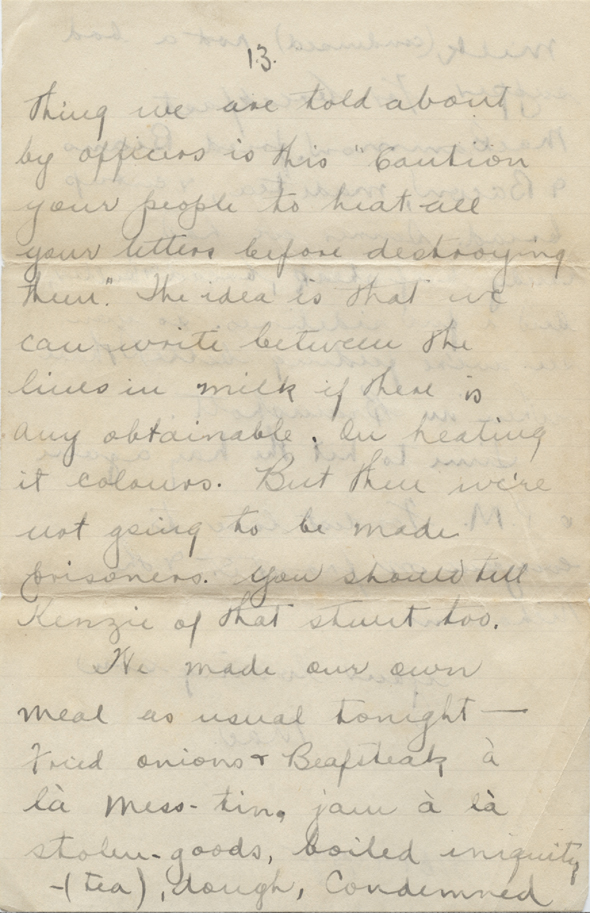 13.
thing we are told about
by officers is this "Caution
your people to heat all
your letters before destroying
them". The idea is that we
can write between the
lines in milk if there is
any obtainable. On heating
it colours. But then we're
not going to be made
prisoners. You should tell
Kenzie of that stunt too.
We made our own
meal as usual tonight —
Fried onions & Beafsteak à
là Mess-tin, jam à là
stolen-goods, boiled iniquity
-(tea), dough, Condemned